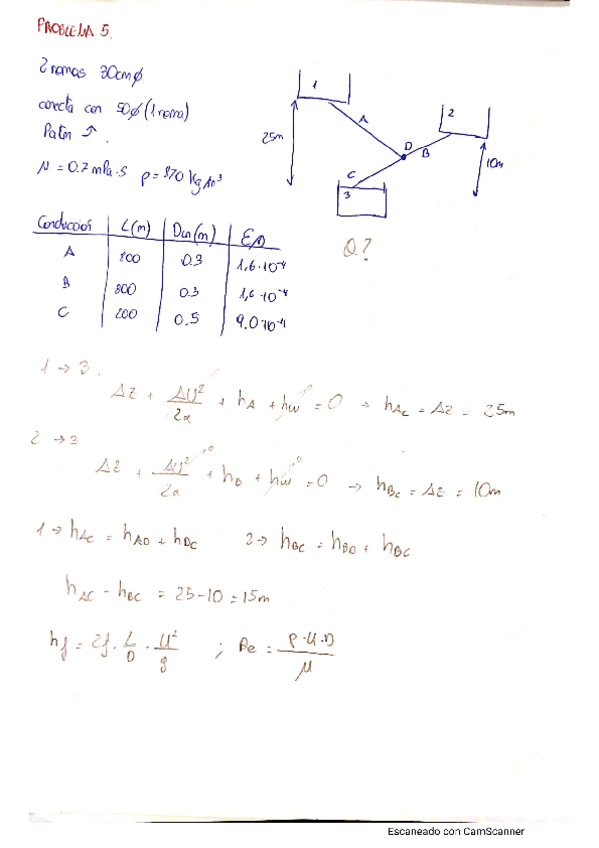 PROBLEMA 5.
2 ramas 30cmϕ
conecta con 50ϕ (1 rama)
Patm ↑.
μ = 0.7 mPa·s ρ = 870 kg/m³
1
A
25m
2
D
B
10m
C
3
Q?
Conduccion | L(m) | Din(m) | E/D
A 800 0.3 1,6·10⁻⁴
B 800 0.3 1,6·10⁻⁴
C 200 0.5 9.0·10⁻⁴
1 → 3.
Δz + ΔU²/2α + hA + hw = 0 → hAC = Δz = 25m
2 → 3
Δz + ΔU²/2α + hB + hw = 0 → hBC = Δz = 10m
1→ hAC = hAD + hDC 2→ hBC = hBD + hBC
hAC - hBC = 25-10 = 15m
hf = 2f · L/D · U²/g ; Re = ρ·U·D/μ
Escaneado con CamScanner